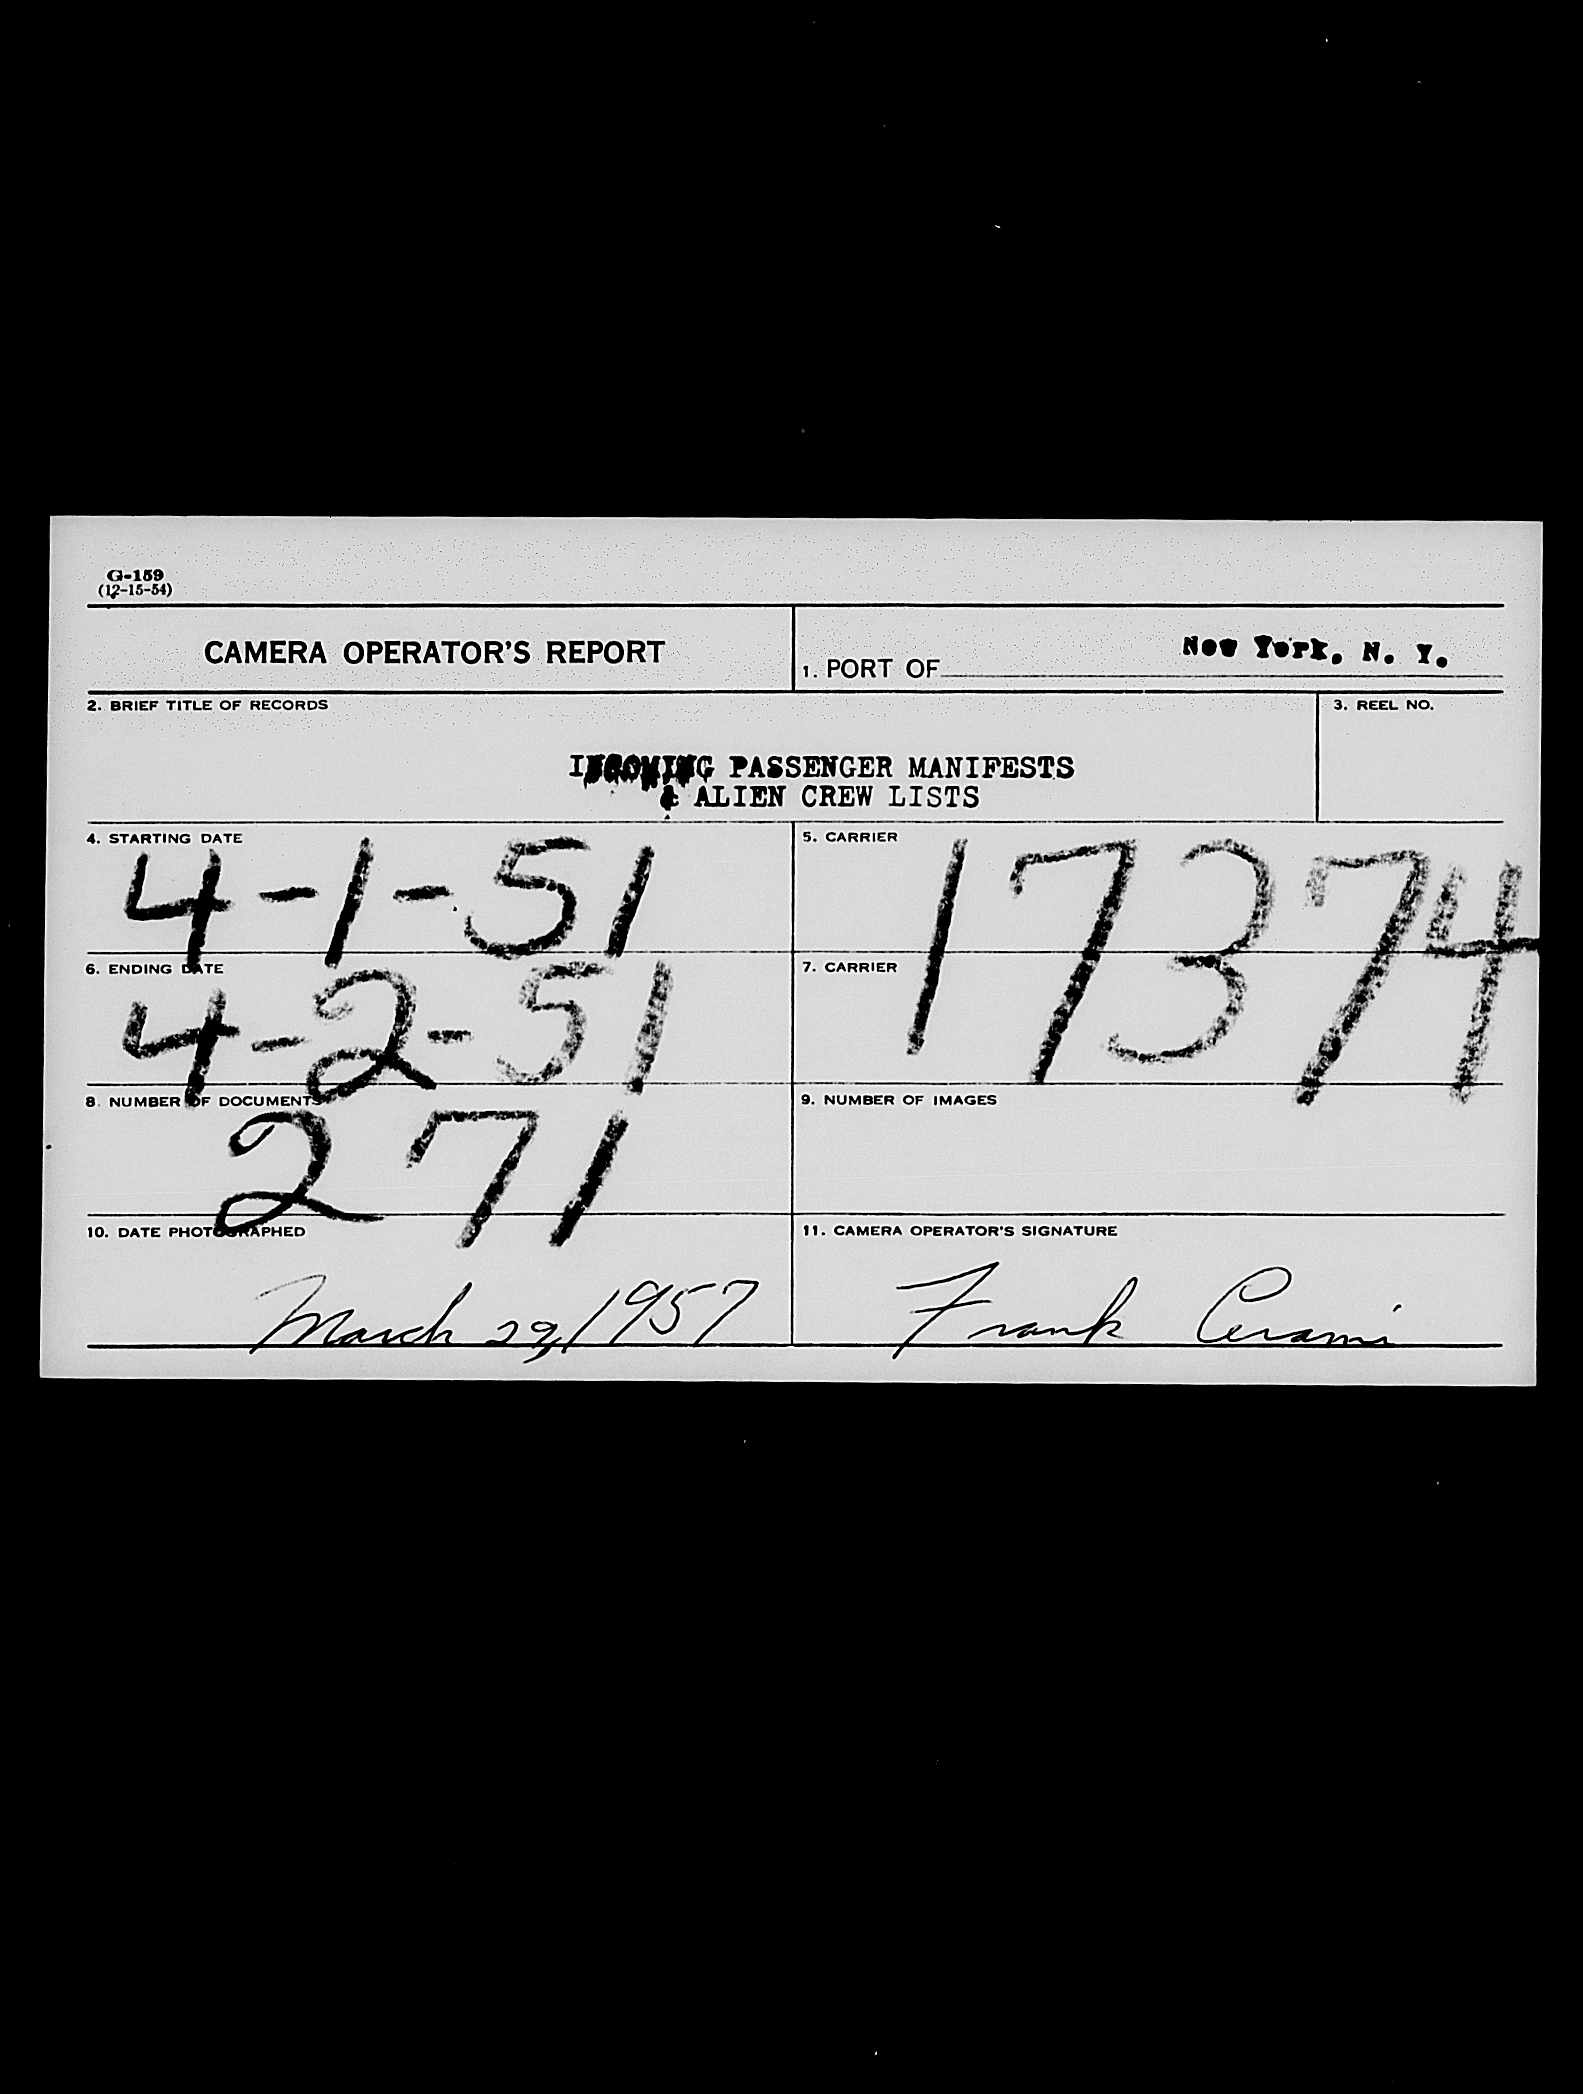 G-159
(12-15-54)
CAMERA OPERATOR'S REPORT
1. PORT OF New York, N. Y.
2. BRIEF TITLE OF RECORDS
3. REEL NO.
INCOMING PASSENGER MANIFESTS
& ALIEN CREW LISTS
4. STARTING DATE
4-1-51
5. CARRIER
17374
6. ENDING DATE
4-2-51
7. CARRIER
8. NUMBER OF DOCUMENTS
271
9. NUMBER OF IMAGES
10. DATE PHOTOGRAPHED
March 29, 1957
11. CAMERA OPERATOR'S SIGNATURE
Frank Cerami